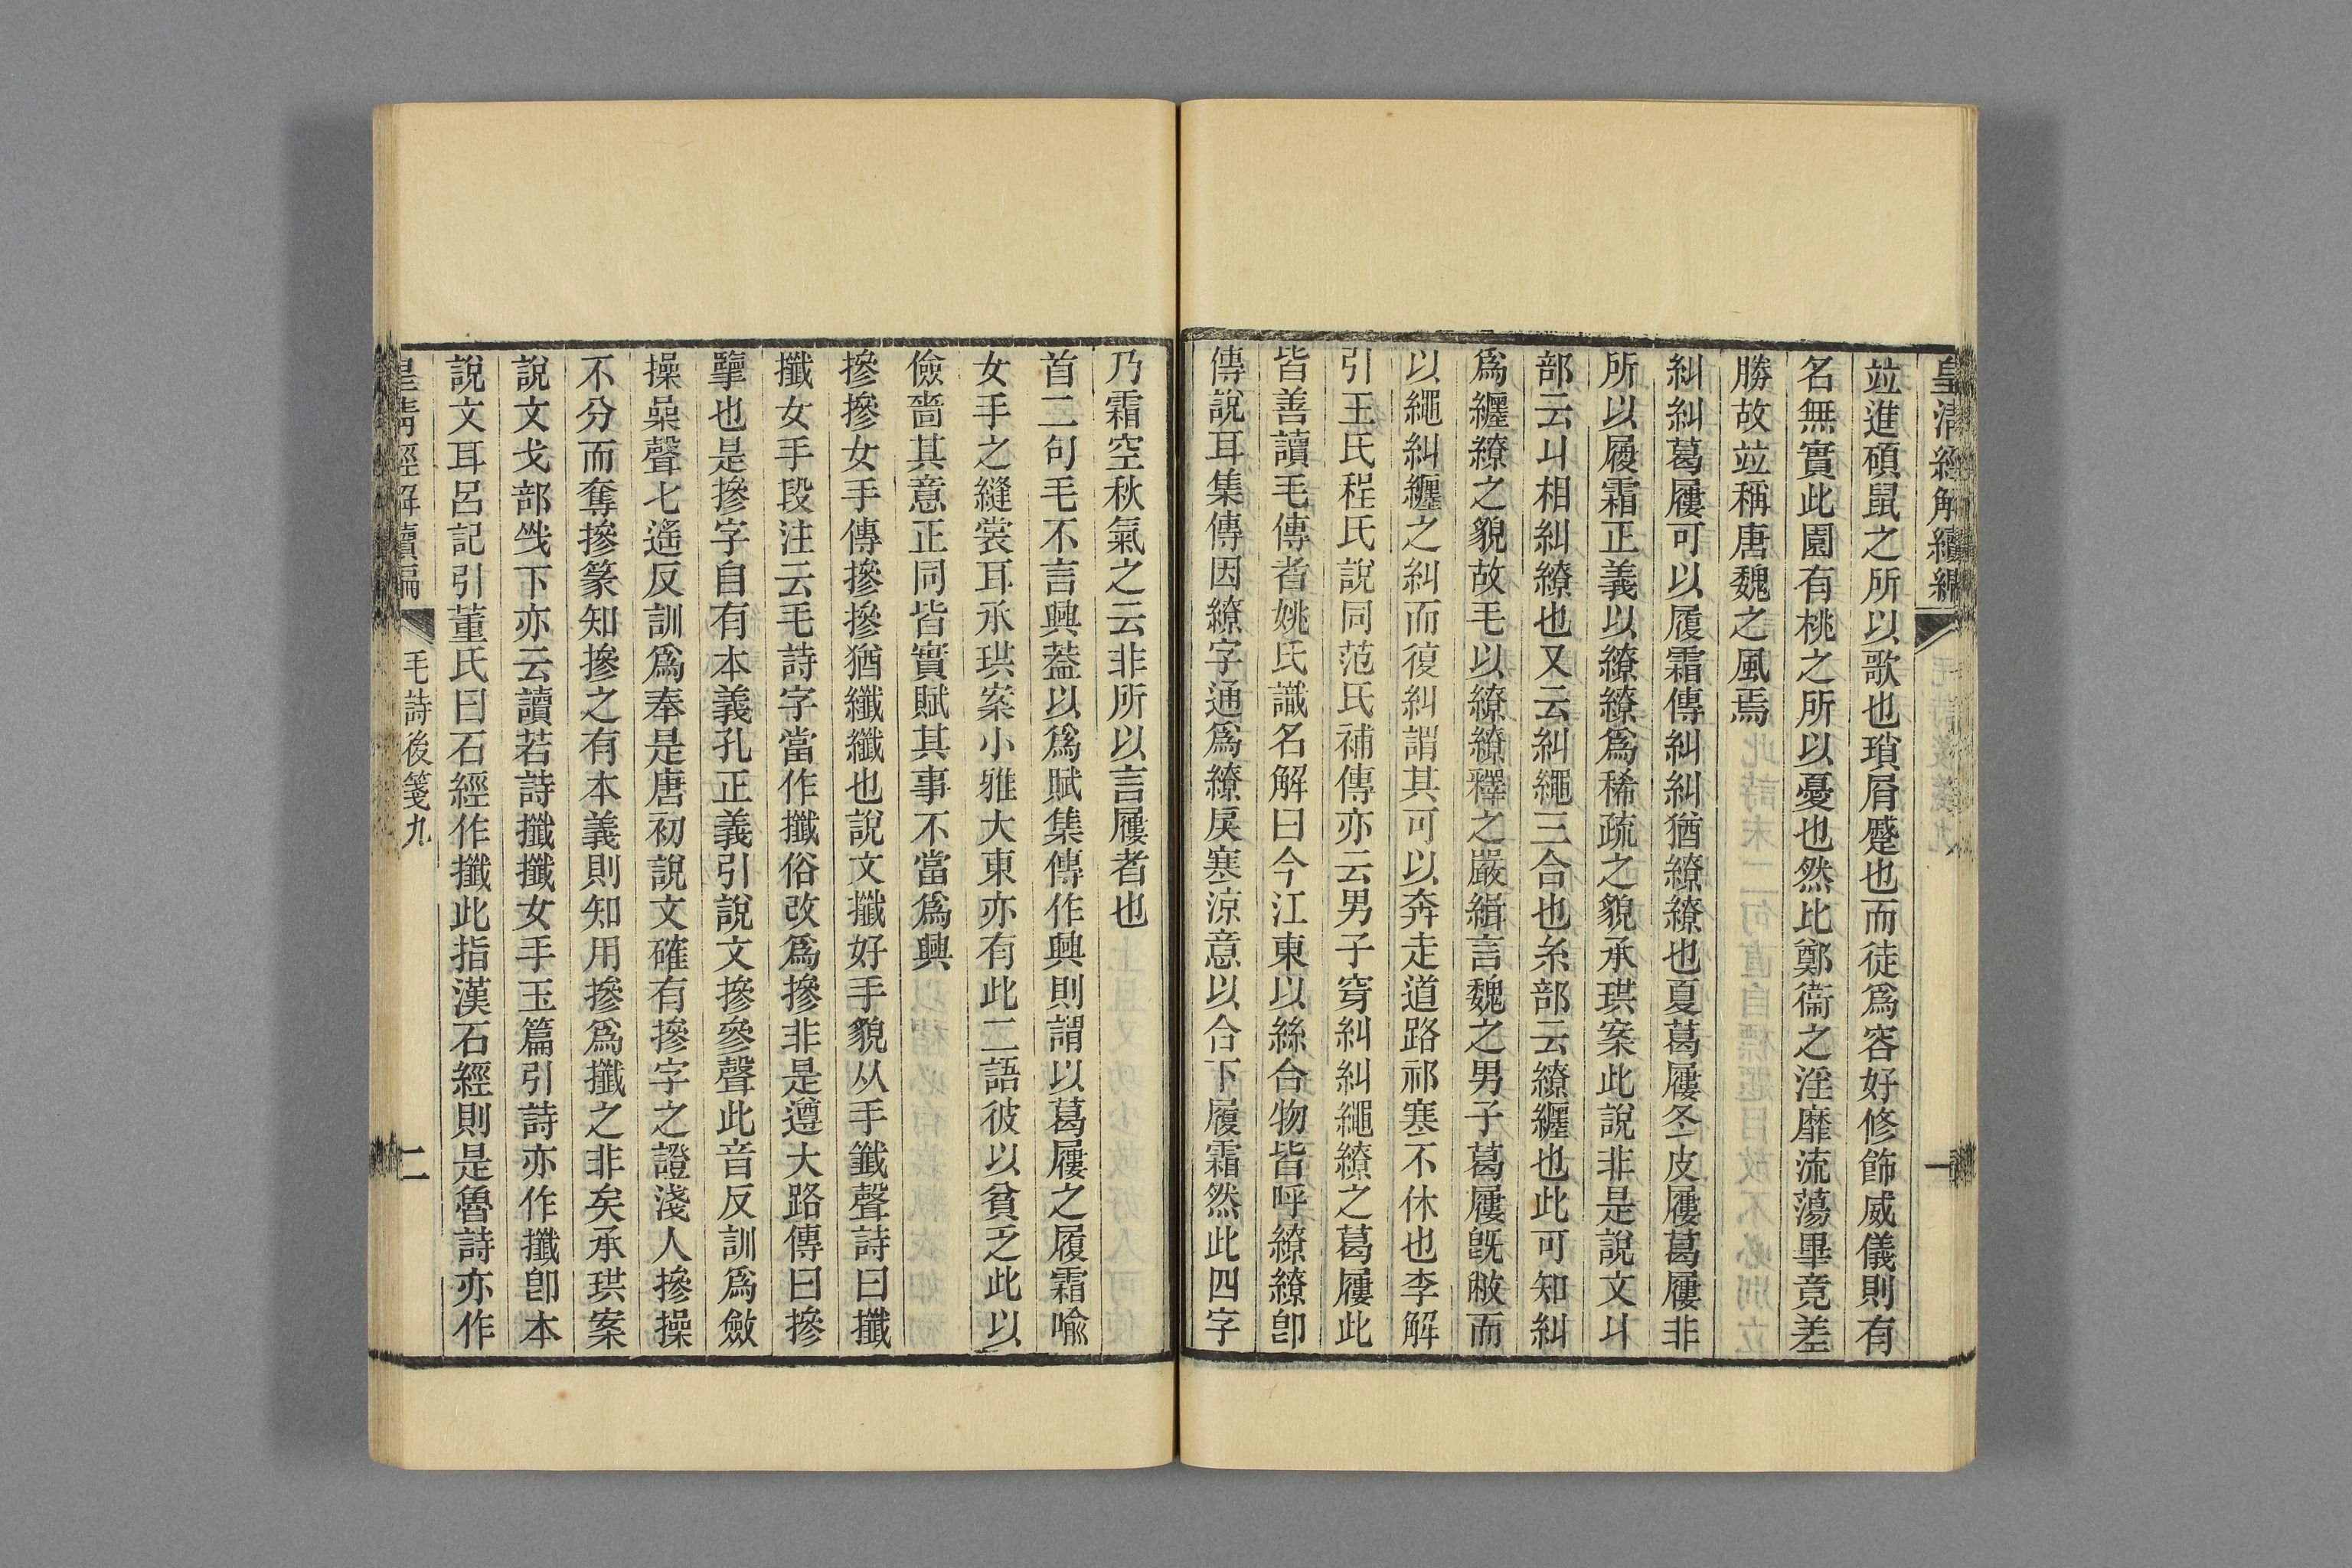 皇清經解續編
一
竝進碩鼠之所以歌也瑣屑蹙也而徒爲容好修飾威儀則有
名無實此園有桃之所以憂也然比鄭衞之淫靡流蕩畢竟差
勝故竝稱唐魏之風焉
糾糾葛屨可以履霜傳糾糾猶繚繚也夏葛屨冬皮屨葛屨非
所以履霜正義以繚繚爲稀疏之貌承珙案此說非是說文丩
部云丩相糾繚也又云糾繩三合也糸部云繚纏也此可知糾
爲纏繚之貌故毛以繚繚釋之嚴緝言魏之男子葛屨旣敝而
以繩糾纏之糾而復糾謂其可以奔走道路祁寒不休也李解
引王氏程氏說同范氏補傳亦云男子穿糾糾繩繚之葛屨此
皆善讀毛傳者姚氏識名解曰今江東以絲合物皆呼繚繚卽
傳說耳集傳因繚字通爲繚戾寒涼意以合下履霜然此四字
乃霜空秋氣之云非所以言屨者也
首二句毛不言興葢以爲賦集傳作興則謂以葛屨之履霜喩
女手之縫裳耳承珙案小雅大東亦有此二語彼以貧乏此以
儉嗇其意正同皆實賦其事不當爲興
摻摻女手傳摻摻猶纖纖也說文攕好手貌从手韱聲詩曰攕
攕女手段注云毛詩字當作攕俗改爲摻非是遵大路傳曰摻
擥也是摻字自有本義孔正義引說文摻參聲此音反訓爲斂
操喿聲七遙反訓爲奉是唐初說文確有摻字之證淺人摻操
不分而奪摻篆知摻之有本義則知用摻爲攕之非矣承珙案
說文戈部㦰下亦云讀若詩攕攕女手玉篇引詩亦作攕卽本
說文耳呂記引董氏曰石經作攕此指漢石經則是魯詩亦作
皇清經解續編
毛詩後箋九
二